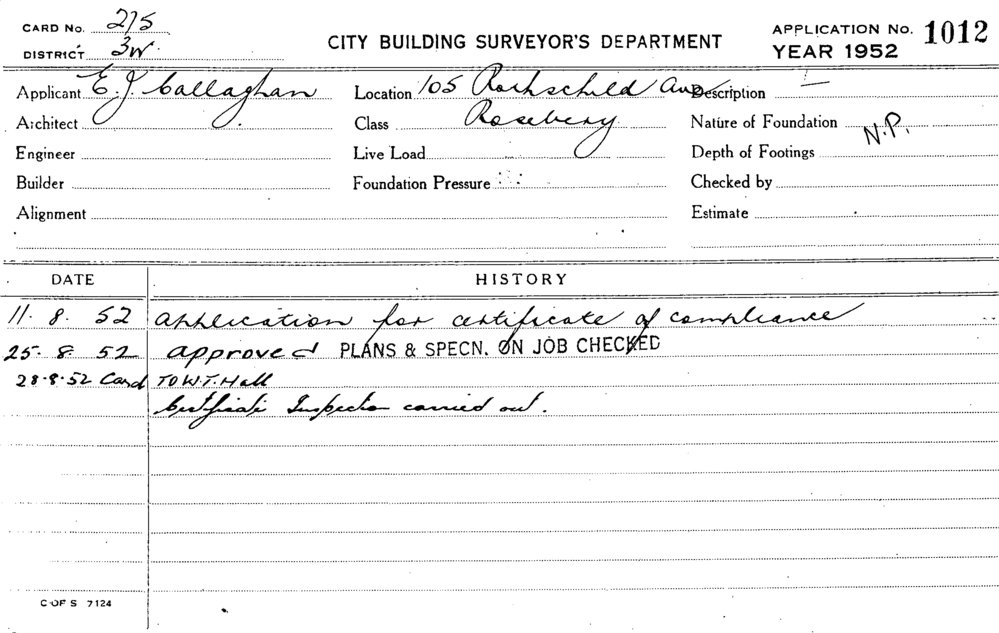 CARD No. 215
DISTRICT 3W.
CITY BUILDING SURVEYOR'S DEPARTMENT
APPLICATION No. 1012
YEAR 1952
Applicant E. J. Callaghan Location 105 Rothschild Ave Description I
Architect Class Rosebery Nature of Foundation N.P.
Engineer Live Load Depth of Footings
Builder Foundation Pressure Checked by
Alignment Estimate
DATE HISTORY
11. 8. 52 Application for certificate of compliance
25. 8. 52 approved PLANS & SPECN. ON JOB CHECKED
28.8.52 Card TO W.T. Hall
Certificate Inspection carried out.
C OF S 7124